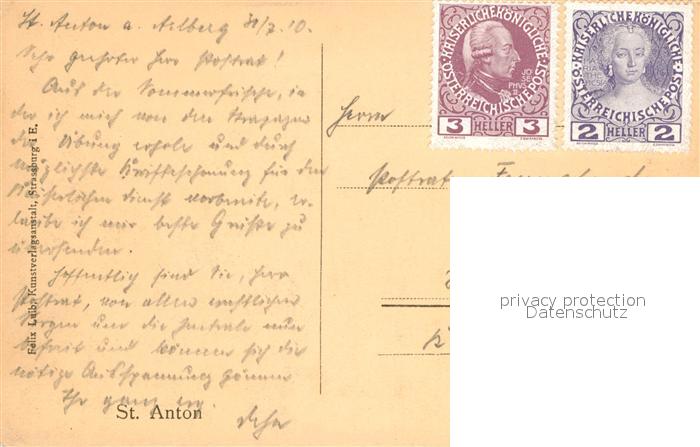 St. Anton a. Arlberg 31/7.10.
Sehr geehrter Herr Postrat!
Aus der Sommerfrische, in
der ich mich von den Strapazen
der Übung erhole und durch
möglichste Kräfteschonung für den
dienst vorbereite, er-
laube ich mir beste Grüße zu
übersenden.
Hoffentlich sind Sie, Herr
Postrat, von allen
Sorgen um die Zentrale nun
befreit und können sich die
nötige Ausspannung gönnen
Ihr ganz erg.
Herrn
Postrat
St. Anton
Felix Luib, Kunstverlagsanstalt, Strassburg i E.
KAISERLICHE KÖNIGLICHE
ÖSTERREICHISCHE POST
3 HELLER 3
KAISERLICHE KÖNIGLICHE
ÖSTERREICHISCHE POST
2 HELLER 2
privacy protection
Datenschutz